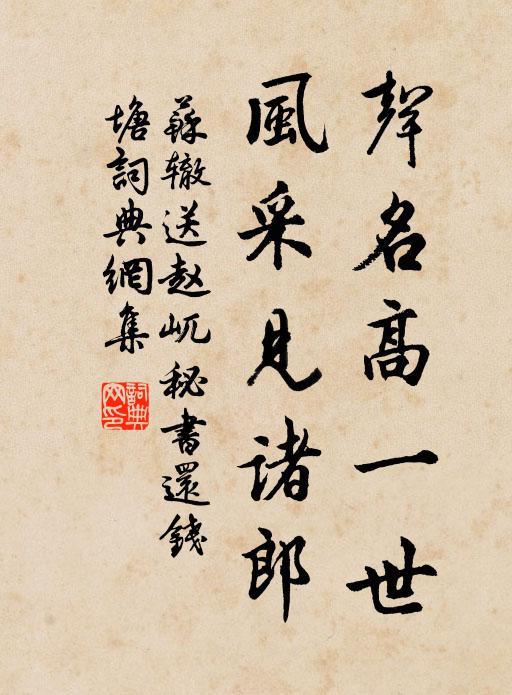 聲名高一世
風采見諸郎
蘇辙送赵屼秘書還錢
塘詞典網集
詞典
网印